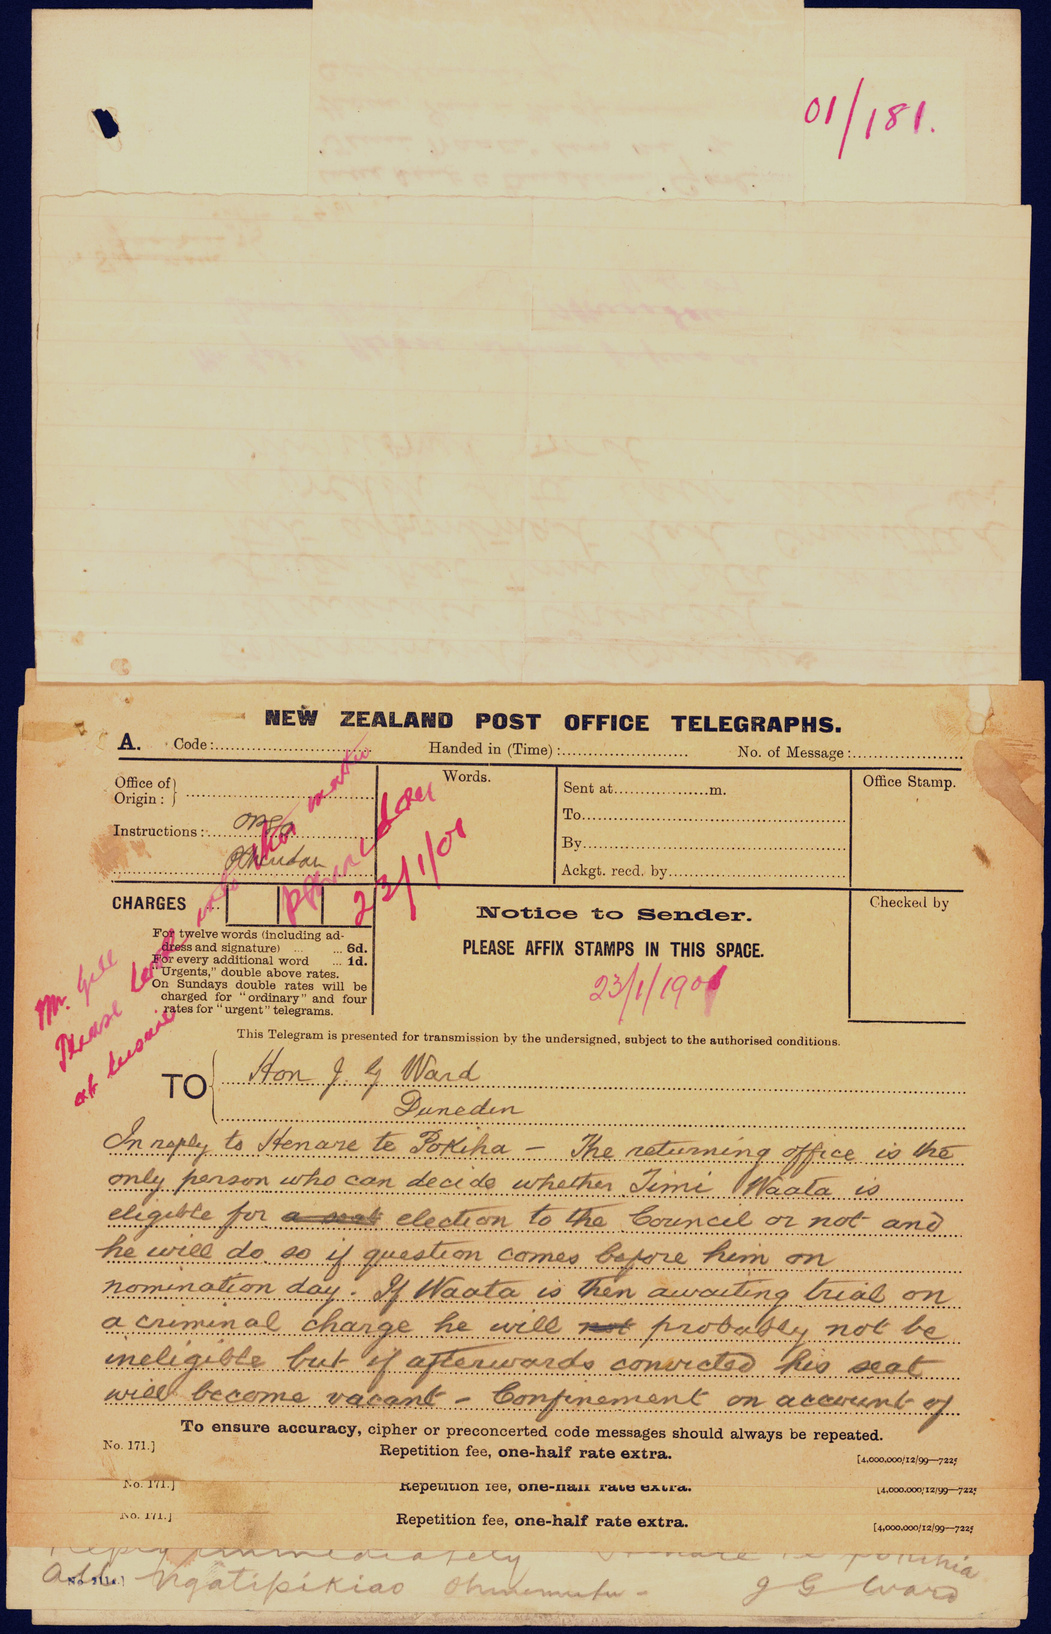 01/181.
NEW ZEALAND POST OFFICE TELEGRAPHS.
A. Code: Handed in (Time): No. of Message:
Office of Origin:
Words.
Sent at m.
Office Stamp.
To
Instructions:
By
Ackgt. recd. by
CHARGES
Notice to Sender.
Checked by
PLEASE AFFIX STAMPS IN THIS SPACE.
For twelve words (including ad-
dress and signature) ... 6d.
For every additional word ... 1d.
"Urgents," double above rates.
On Sundays double rates will be
charged for "ordinary" and four
rates for "urgent" telegrams.
Mr. Gill
Please
at
23/1/01
23/1/1901
This Telegram is presented for transmission by the undersigned, subject to the authorised conditions.
TO Hon J. G Ward
Dunedin
In reply to Henare te Pokiha - The returning office is the
only person who can decide whether Timi Waata is
eligible for a seat election to the Council or not and
he will do so if question comes before him on
nomination day. If Waata is then awaiting trial on
a criminal charge he will not probably not be
ineligible but if afterwards convicted his seat
will become vacant - Confinement on account of
To ensure accuracy, cipher or preconcerted code messages should always be repeated.
No. 171.]
Repetition fee, one-half rate extra.
[4,000,000/12/99—722
No. 171.]
Repetition fee, one-half rate extra.
[4,000,000/12/99—722
No. 171.]
Repetition fee, one-half rate extra.
[4,000,000/12/99—722
Reply immediately Henare te Pokihia
Ngatipikiao Ohinemutu - J G Ward